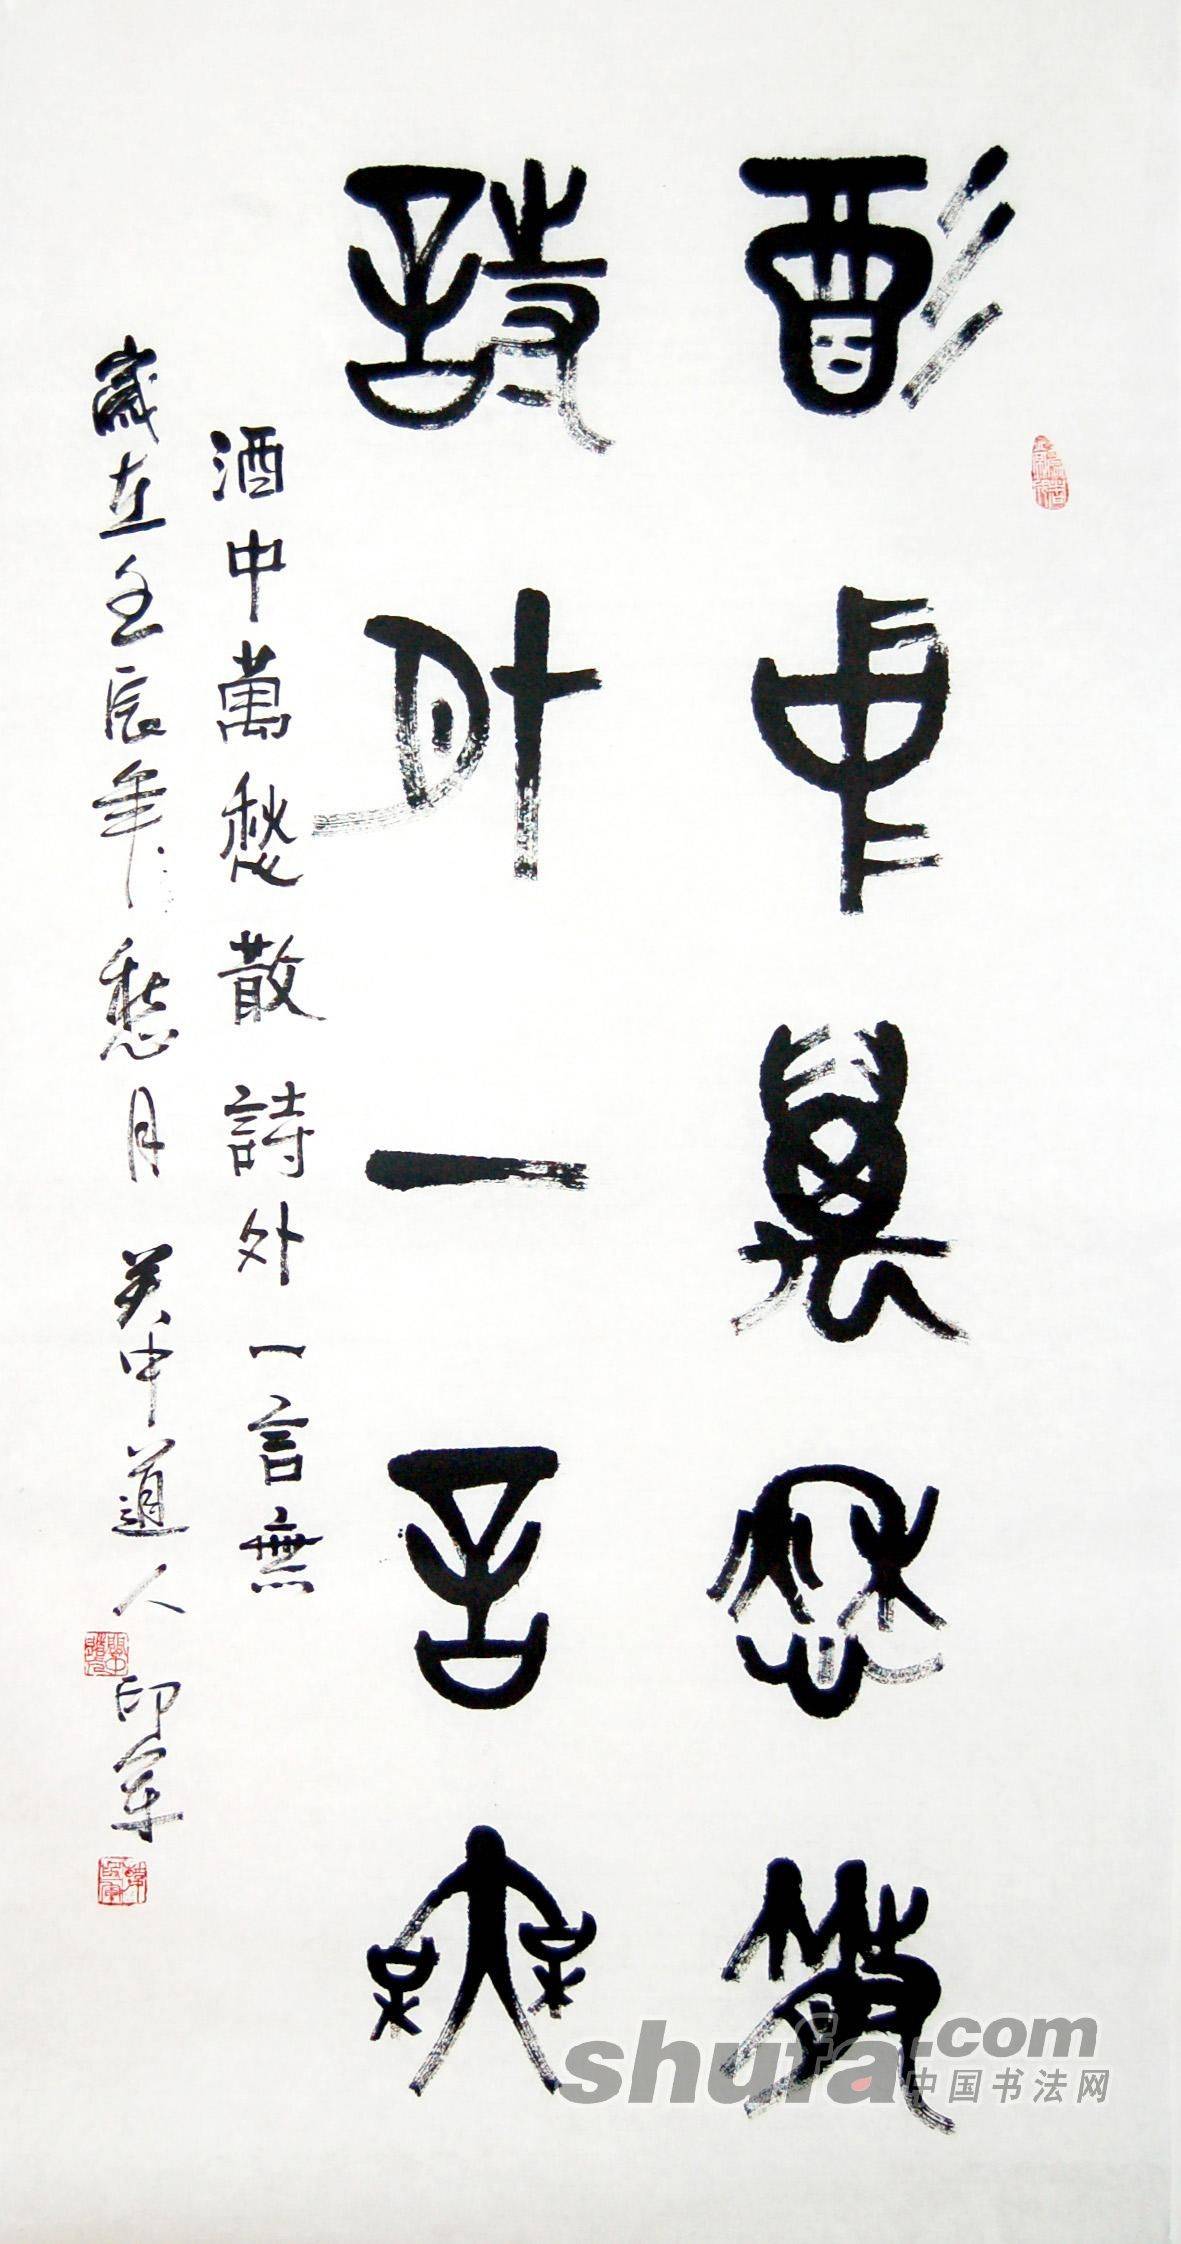 酒中萬愁散
詩外一言無
酒中萬愁散詩外一言無
歲在壬辰年愁月关中道人印軍
shufa.com
中国书法网